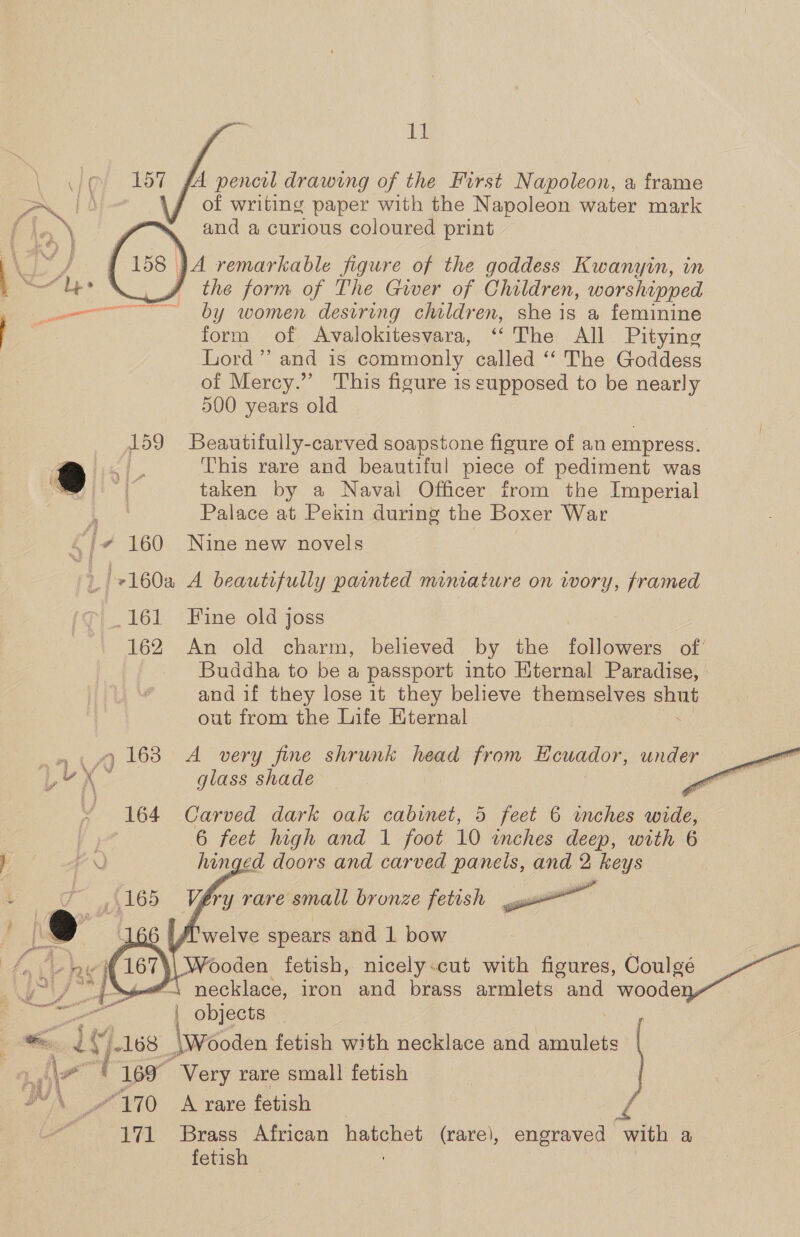 11
157 A pencil drawing of the First Napoleon, a frame
of writing paper with the Napoleon water mark
and a curious coloured print
158 A remarkable figure of the goddess Kwanyin, in
the form of The Giver of Children, worshipped
by women desiring children, she is a feminine
form of Avalokitesvara, “ The All Pitying
Lord ” and is commonly called “ The Goddess
of Mercy.” This figure is supposed to be nearly
500 years old
159 Beautifully-carved soapstone figure of an empress.
This rare and beautiful piece of pediment was
taken by a Naval Officer from the Imperial
Palace at Pekin during the Boxer War
160 Nine new novels
160a A beautifully painted miniature on ivory, framed
161 Fine old joss
162 An old charm, believed by the followers of
Buddha to be a passport into Eternal Paradise,
and if they lose it they believe themselves shut
out from the Life Eternal
163 A very fine shrunk head from Ecuador, under
glass shade
164 Carved dark oak cabinet, 5 feet 6 inches wide,
6 feet high and 1 foot 10 inches deep, with 6
hinged doors and carved panels, and 2 keys
165 Very rare small bronze fetish
166 Twelve spears and 1 bow
167 Wooden fetish, nicely cut with figures, Coulgé
necklace, iron and brass armlets and wooden
objects
168 Wooden fetish with necklace and amulets
169 Very rare small fetish
170 A rare fetish
171 Brass African hatchet (rare), engraved with a
fetish